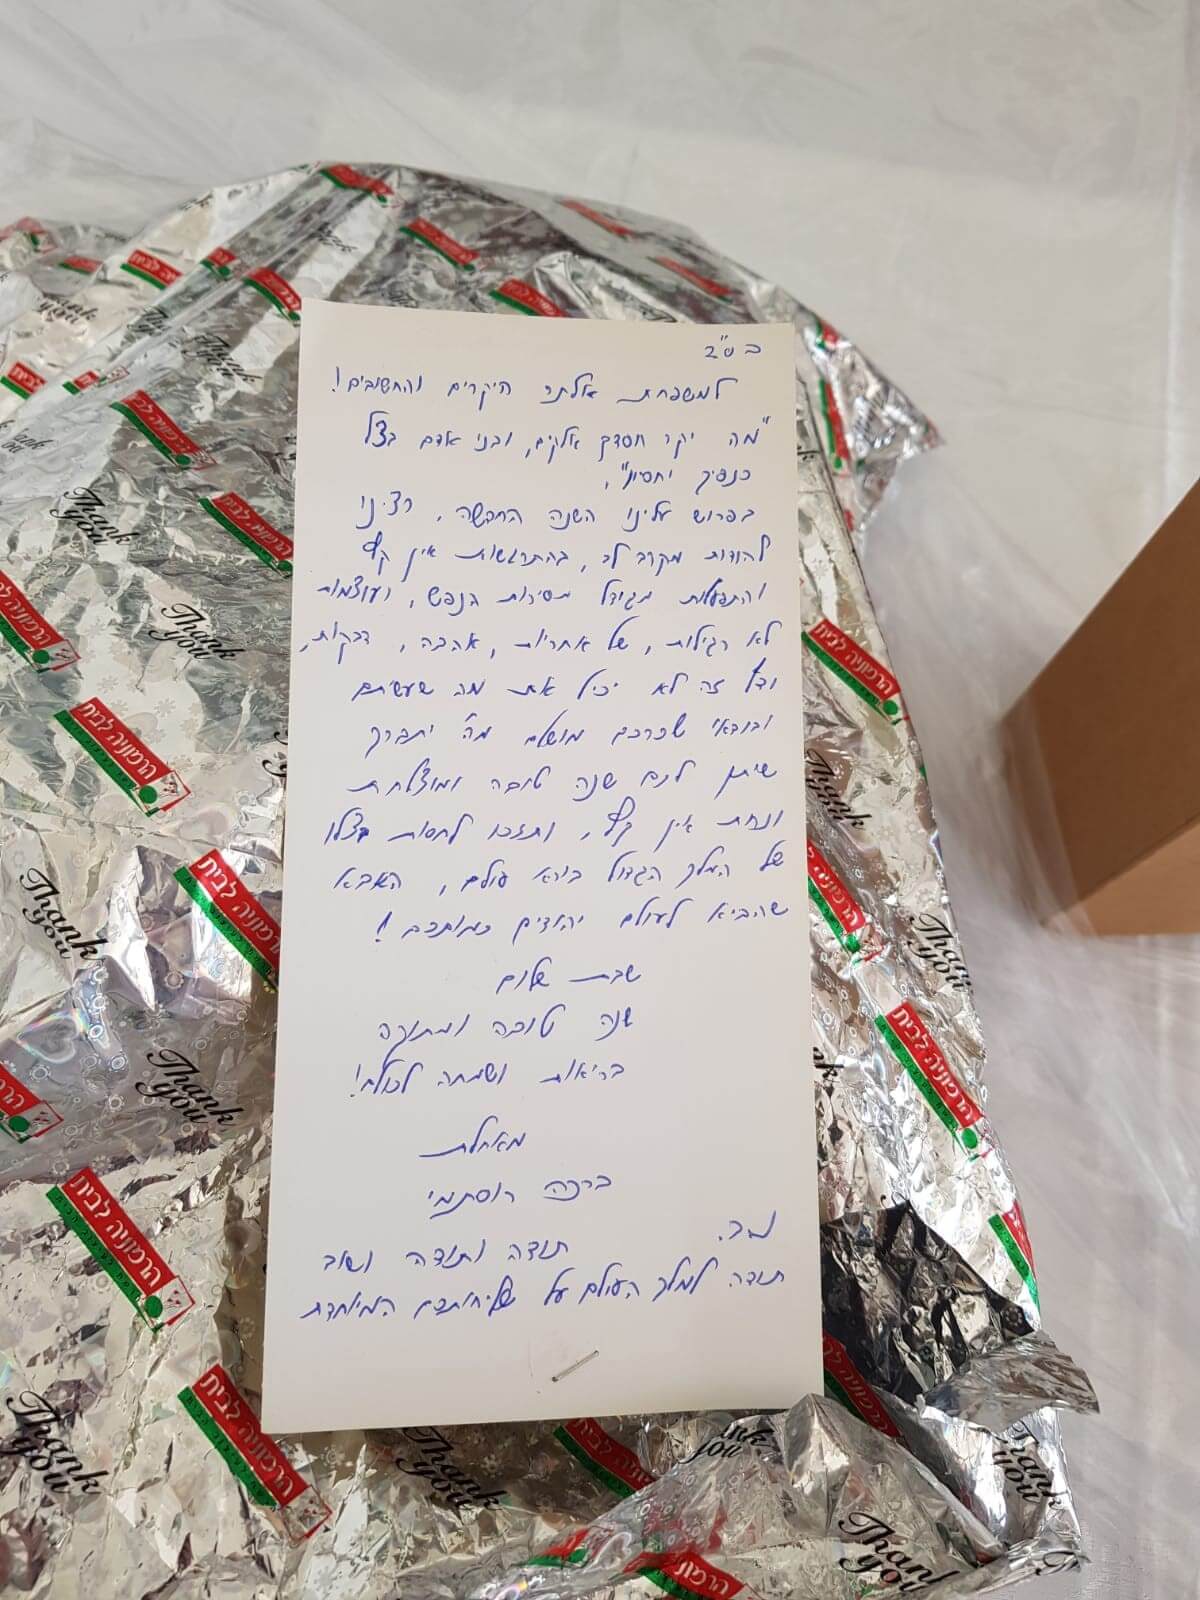 בס"ד
למשפחת אלתר היקרים והחשובים!
"מה יקר חסדך אלקים, ובני אדם בצל
כנפיך יחסיון",
בפרוש עלינו השנה החדשה, רצינו
להודות מקרב לב, בהתרגשות אין קץ
והתפעלות מגודל מסירות הנפש, ועוצמות
לא רגילות, של אחריות, אהבה, דבקות,
וכל זה לא יכיל את מה שעשיתם
ובודאי שכרכם מושלם מה' יתברך
שיתן לכם שנה טובה ומוצלחת
ונחת אין קץ, ותזכו לחסות בצלו
של המלך הגדול בורא עולם, האבא
שהביא לעולם יהודים כמותכם!
שבת שלום
שנה טובה ומתוקה
בריאות ושמחה לכולם!
מאחלת
ברכה רוסתמי
נ.ב. תודה ותודה ושוב
תודה למלך העולם על שליחותכם המיוחדת
Thank you
הרמוניה לבית